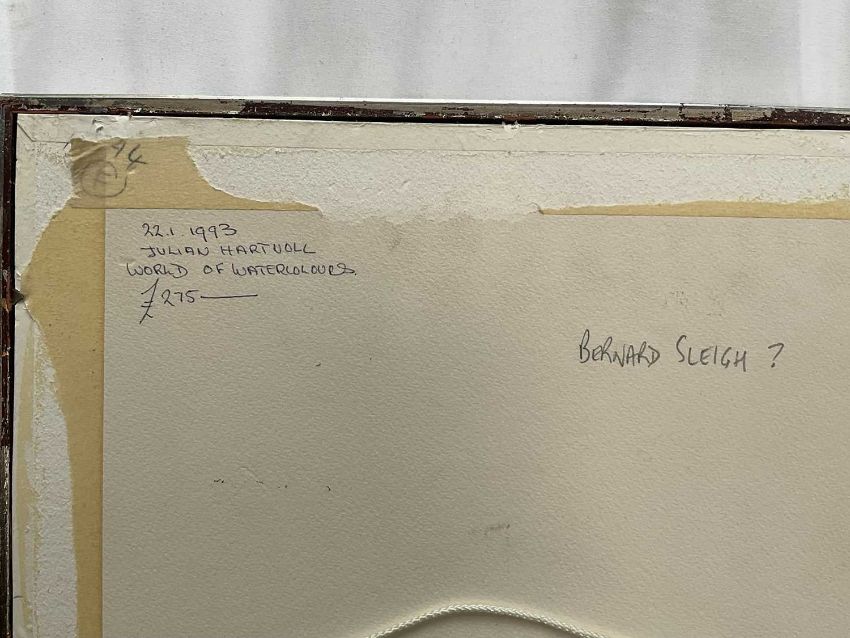 94
E
22.1.1993
JULIAN HARTNOLL
WORLD OF WATERCOLOURS.
£275—
BERNARD SLEIGH ?